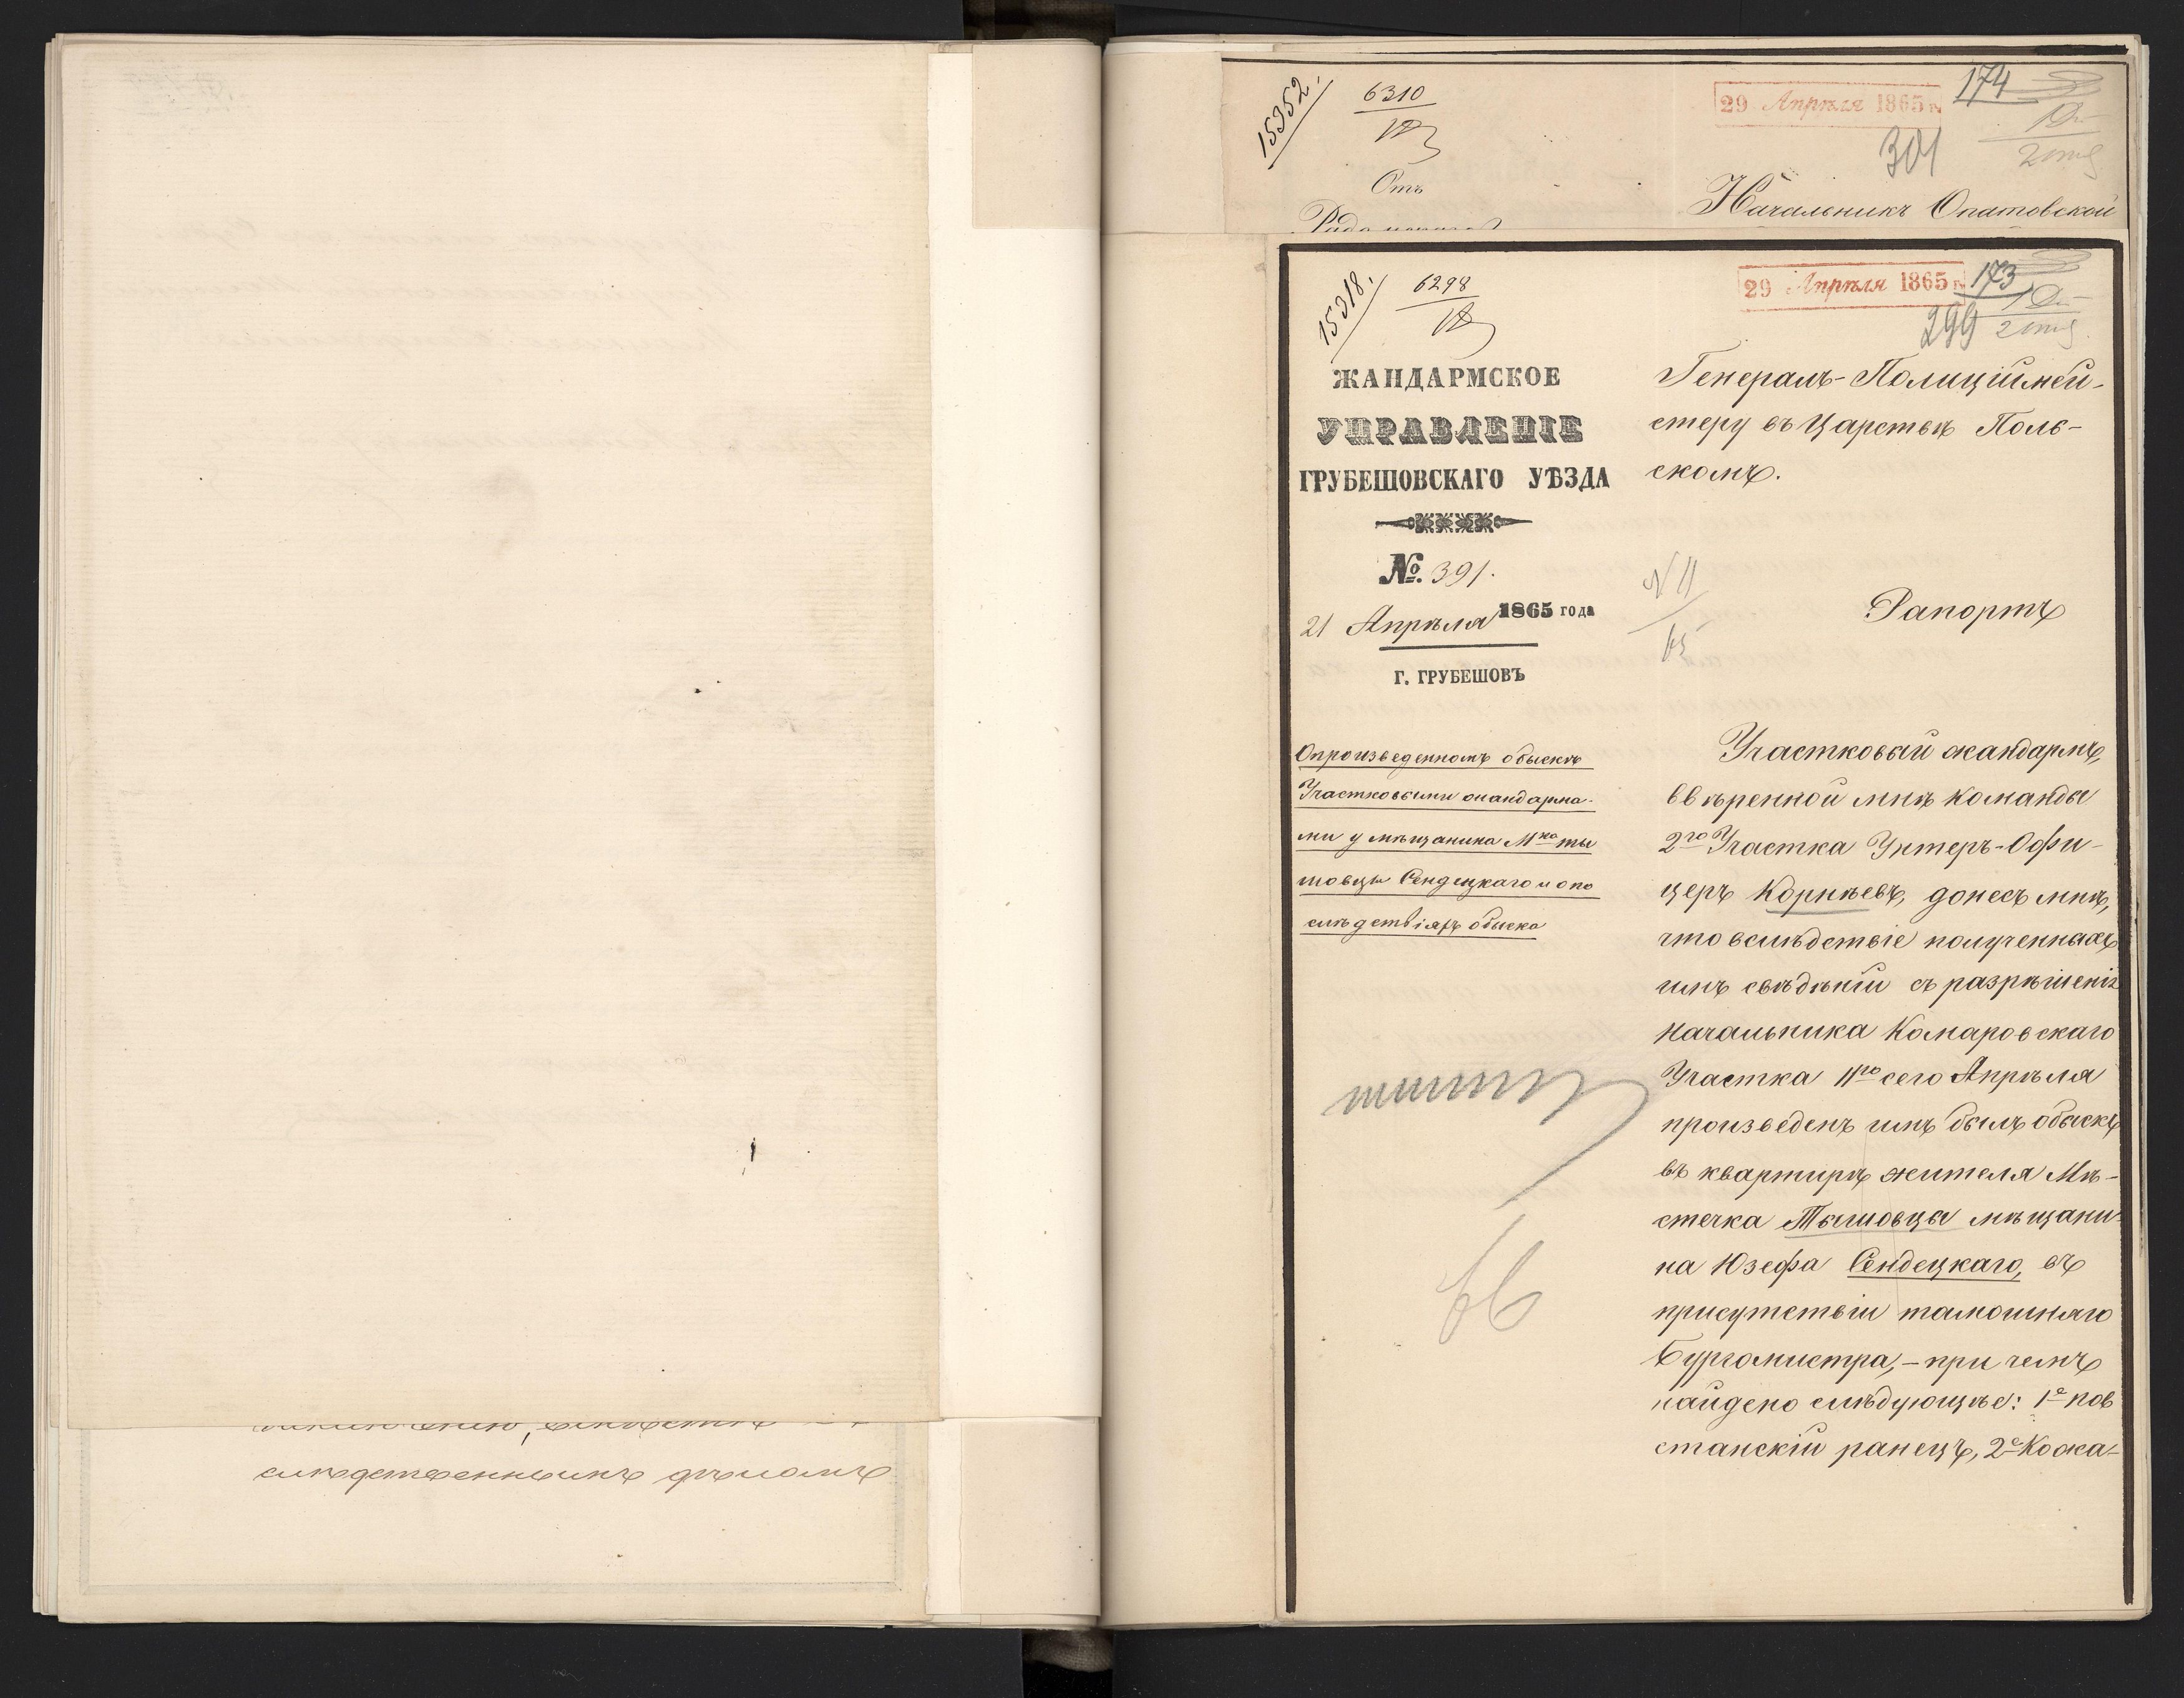 слѣдственнымъ дѣломъ
15352.
6310
29 Апрѣля 1865 г.
174
301
Отъ
Начальникъ Опатовской
15318.
6298
29 Апрѣля 1865 г.
173
299
ЖАНДАРМСКОЕ
УПРАВЛЕНІЕ
ГРУБЕШОВСКАГО УѢЗДА
№ 391.
21 Апрѣля 1865 года
Г. ГРУБЕШОВЪ
О произведенномъ обыскѣ
Участковыми жандарма-
ми у мѣщанина Мѣка ты
шовцы Сендецкаго и о по
слѣдствіяхъ обыска
Генералъ-Полиціймей-
стеру въ Царствѣ Поль-
скомъ.
N 11
65
Рапортъ
Участковый жандармъ,
ввѣренной мнѣ команды
2го Участка Унтеръ-Офи-
церъ Корнѣевъ, донесъ мнѣ,
что вслѣдствіе полученныхъ
имъ свѣдѣній съ разрѣшенія
Начальника Комаровскаго
Участка 11го сего Апрѣля
произведенъ имъ былъ обыскъ
въ квартирѣ жителя Мѣ-
стечка Тышовцы мѣщани-
на Юзефа Сендецкаго, въ
присутствіи тамошняго
Бургомистра, - при чемъ
найдено слѣдующѣе: 1е пов
станскій ранецъ, 2е Кожа-